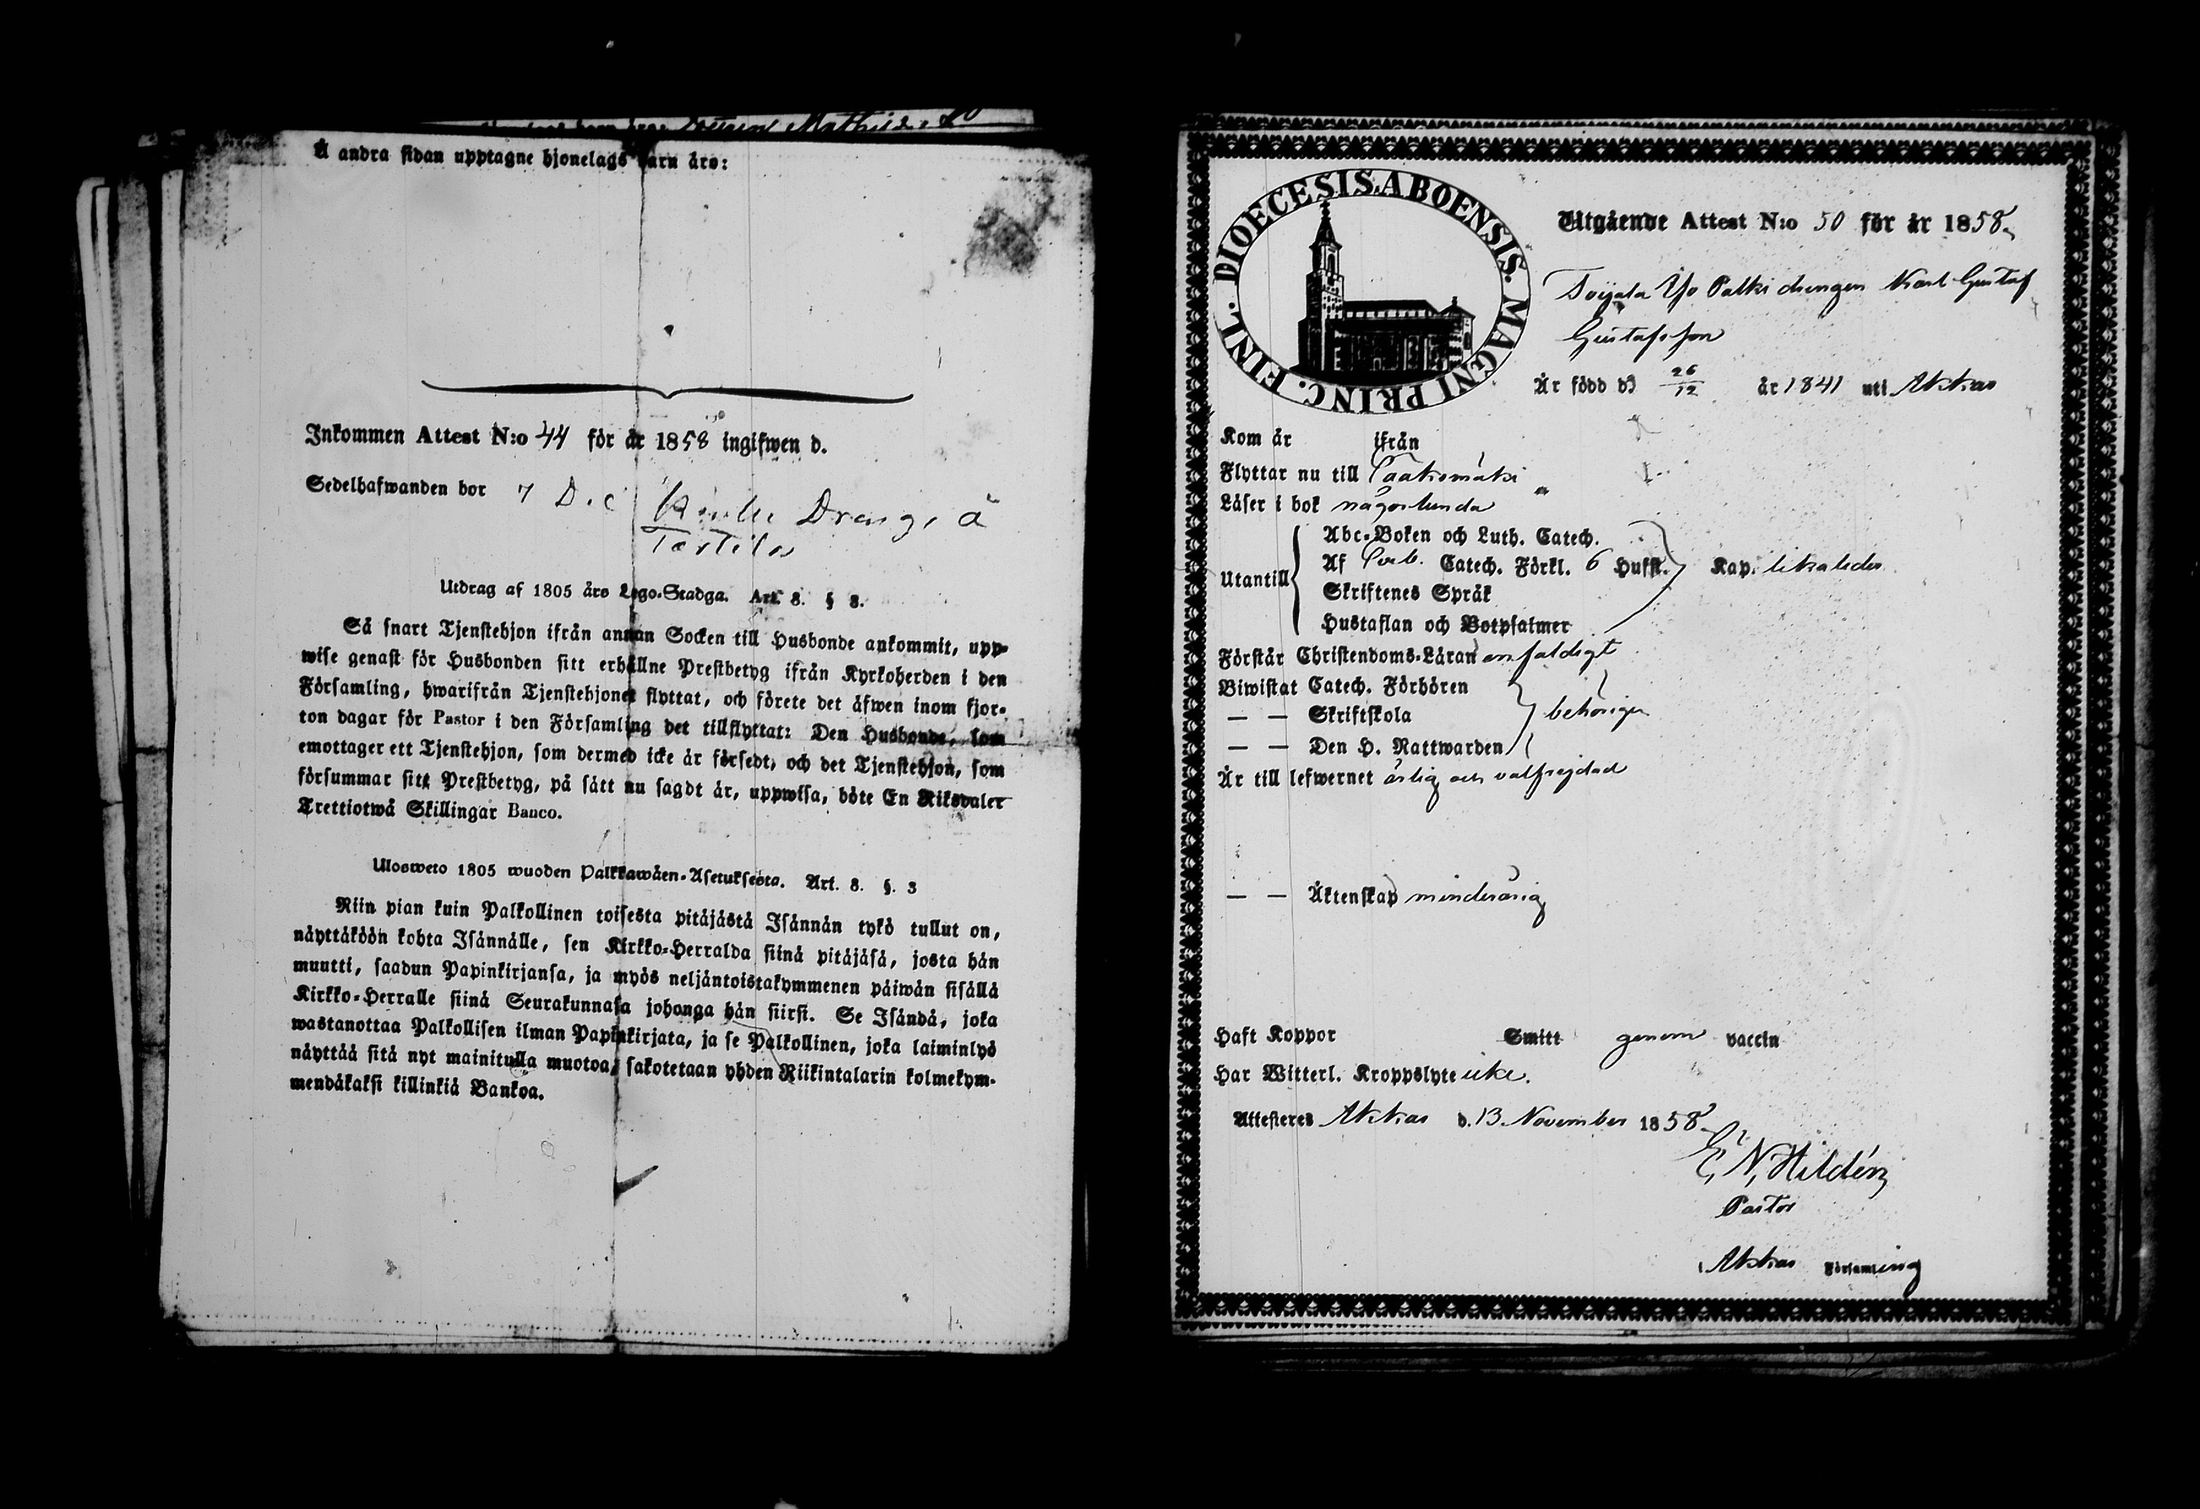 Å andra sidan upptagne hjonelags barn äro:
Inkommen Attest N:o 44 för år 1858 ingifwen d.
Sedelhafwanden bor 7 Dec Dräng å
Utdrag af 1805 års Lego-Stadga. Art. 8. § 8.
Så snart Tjenstehjon ifrån annan Socken till Husbonde ankommit, upp-
wise genast för Husbonden sitt erhållne Prestbetyg ifrån Kyrkoherden i den
Församling, hwarifrån Tjenstehjonet flyttat, och förete det äfwen inom fjor-
ton dagar för Pastor i den Församling det tillflyttat: Den Husbonde, som
emottager ett Tjenstehjon, som dermed icke är försedt, och det Tjenstehjon, som
försummar sitt Prestbetyg, på sätt nu sagdt är, uppwisa, böte En Riksdaler
Trettiotwå Skillingar Banco.
Ulosweto 1805 wuoden Palkkawäen-Asetuksesta. Art. 8. §. 3
Niin pian kuin Palkollinen toisesta pitäjästä Isännän tykö tullut on,
näyttäköön kohta Isännälle, sen Kirkko-Herralda siinä pitäjäsä, josta hän
muutti, saadun Papinkirjansa, ja myös neljäntoistakymmenen päiwän sisällä
Kirkko-Herralle siinä Seurakunnasa johonga hän siirsi. Se Isändä, joka
wastanottaa Palkollisen ilman Papinkirjata, ja se Palkollinen, joka laiminlyö
näyttää sitä nyt mainitulla muotoa, sakotetaan yhden Riikintalarin kolmekym-
mendäkaksi killinkiä Bankoa.
DIOECESIS.ABOENSIS. MAGNI PRINC. FINL.
Utgående Attest N:o 50 för år 1858
Toijala Yso Palki drengen Karl Gustaf
Gustafsson
Är född d) 26/12 år 1841 uti Akkas
Kom år ifrån
Flyttar nu till Sääksmäki
Läser i bok någorlunda
Utantill
Abc-Boken och Luth. Catech.
Af Catech. Förkl. 6 Hufst. Kap. likaledes
Skriftenes Språk
Hustaflan och Botpsalmer
Förstår Christendoms-Läran enfaldigt
Biwistat Catech. Förhören
— — Skriftskola behörigen
— — Den H. Nattwarden
Är till lefwernet ärlig och välfrejdad
— — Äktenskap minderårig
Haft Koppor Smitt genom vaccin
Har Witterl. Kroppslyte icke.
Attesteres Akkas d. 13 November 1858
E. N. Hildén
Pastor
Akkas Församling